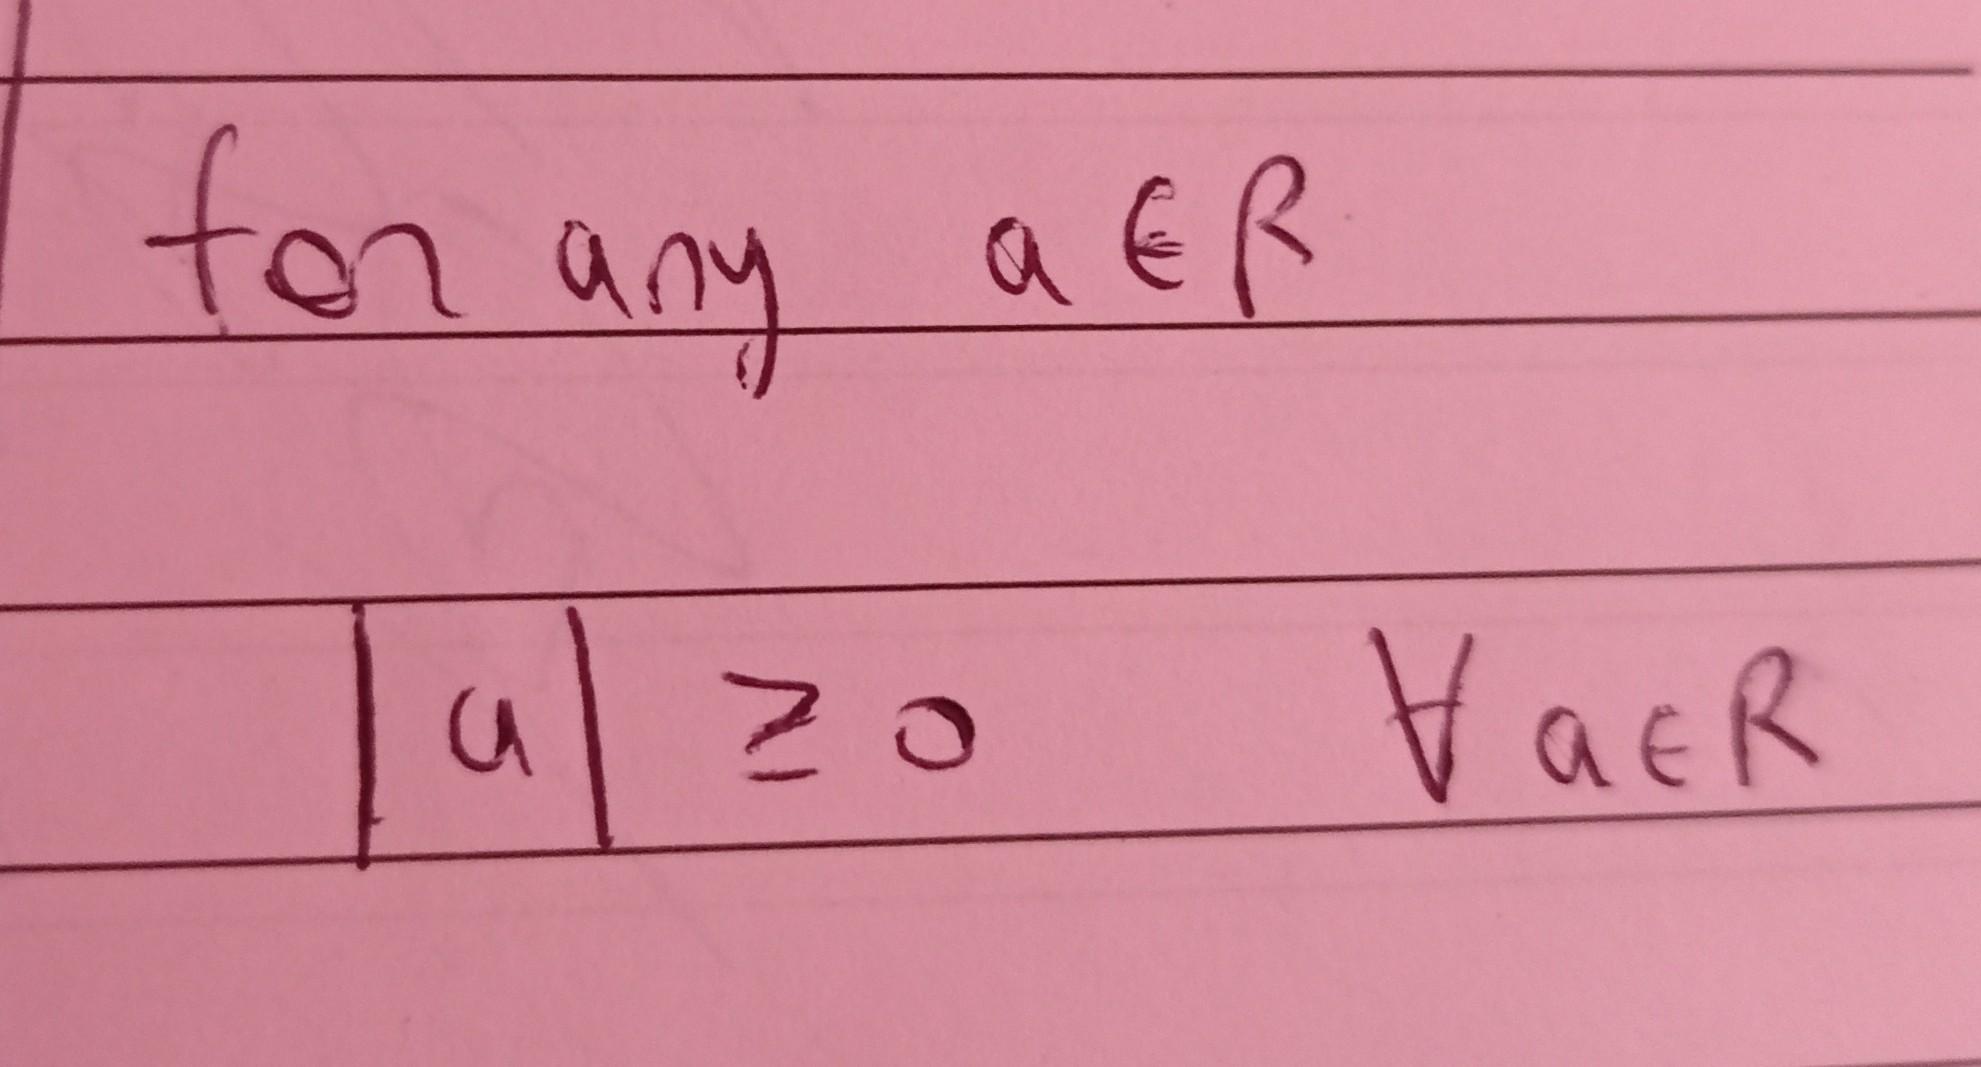 for any a ∈ R
|a| ≥ 0 ∀ a ∈ R